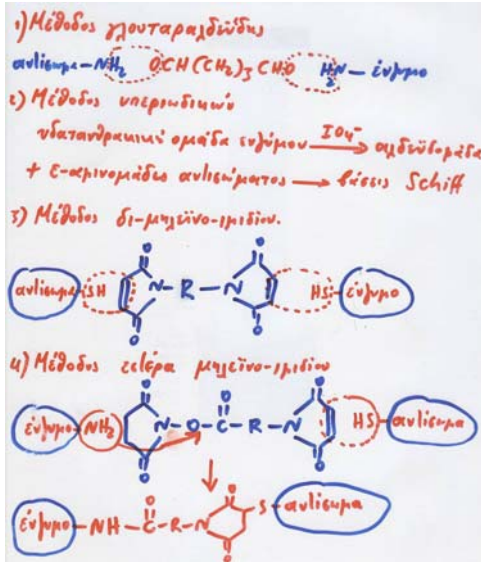 1) Μέθοδος γλουταραλδεΰδης
αντίσωμα-NH₂ OCH(CH₂)₃CHO H₂N-ένζυμο
2) Μέθοδος υπεριωδικών
υδατανθρακική ομάδα ενζύμου IO₄⁻ → αλδεϋδομάδα
+ ε-αμινομάδες αντισώματος → βάσεις Schiff
3) Μέθοδος δι-μηλεϊνο-ιμιδίου.
O O
αντίσωμα-SH N-R-N HS-ένζυμο
O O
4) Μέθοδος εστέρα μηλεϊνο-ιμιδίου
O O O
ένζυμο-NH₂ N-O-C-R-N HS-αντίσωμα
O O
O O
ένζυμο-NH-C-R-N S-αντίσωμα
O